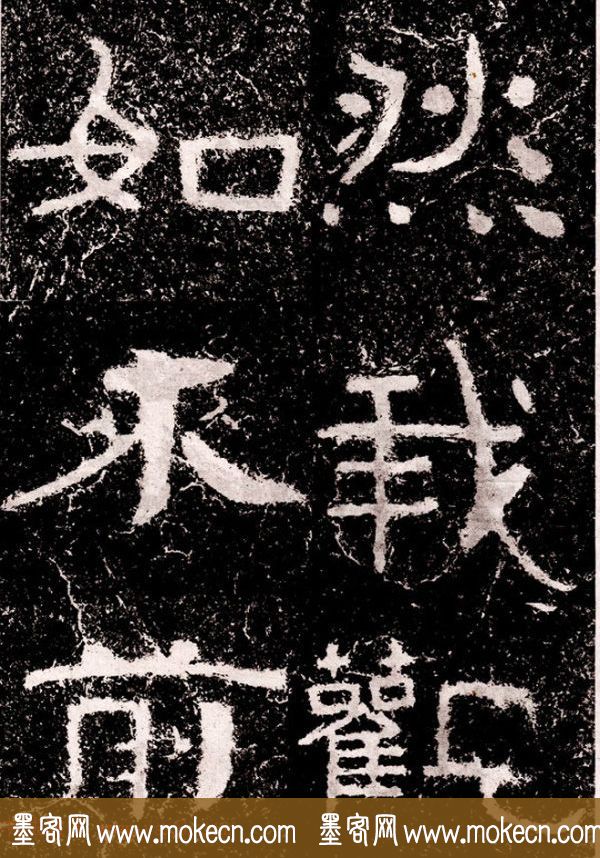 然
觀
如
不
前
墨客网 www.mokecn.com 墨客网 www.mokecn.com